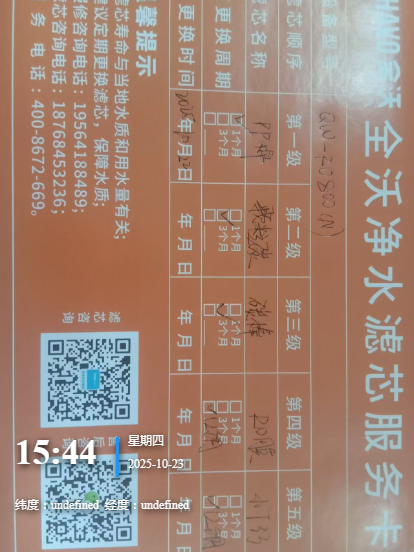 全沃净水滤芯服务卡
滤芯顺序 第一级 第二级 第三级 第四级 第五级
滤芯名称 PP棉 颗粒炭 RO膜
更换周期 1个月 3个月 1个月 3个月 1个月 3个月 1个月 3个月
更换时间 年 月 日 年 月 日 年 月 日 年 月 日
馨提示
滤芯寿命与当地水质和用水量有关;
建议定期更换滤芯,保障水质;
修咨询电话:19564188489;
芯咨询电话:18768453236;
务电话:400-8672-669。
滤芯咨询
15:44
星期四
2025-10-23
纬度:undefined 经度:undefined